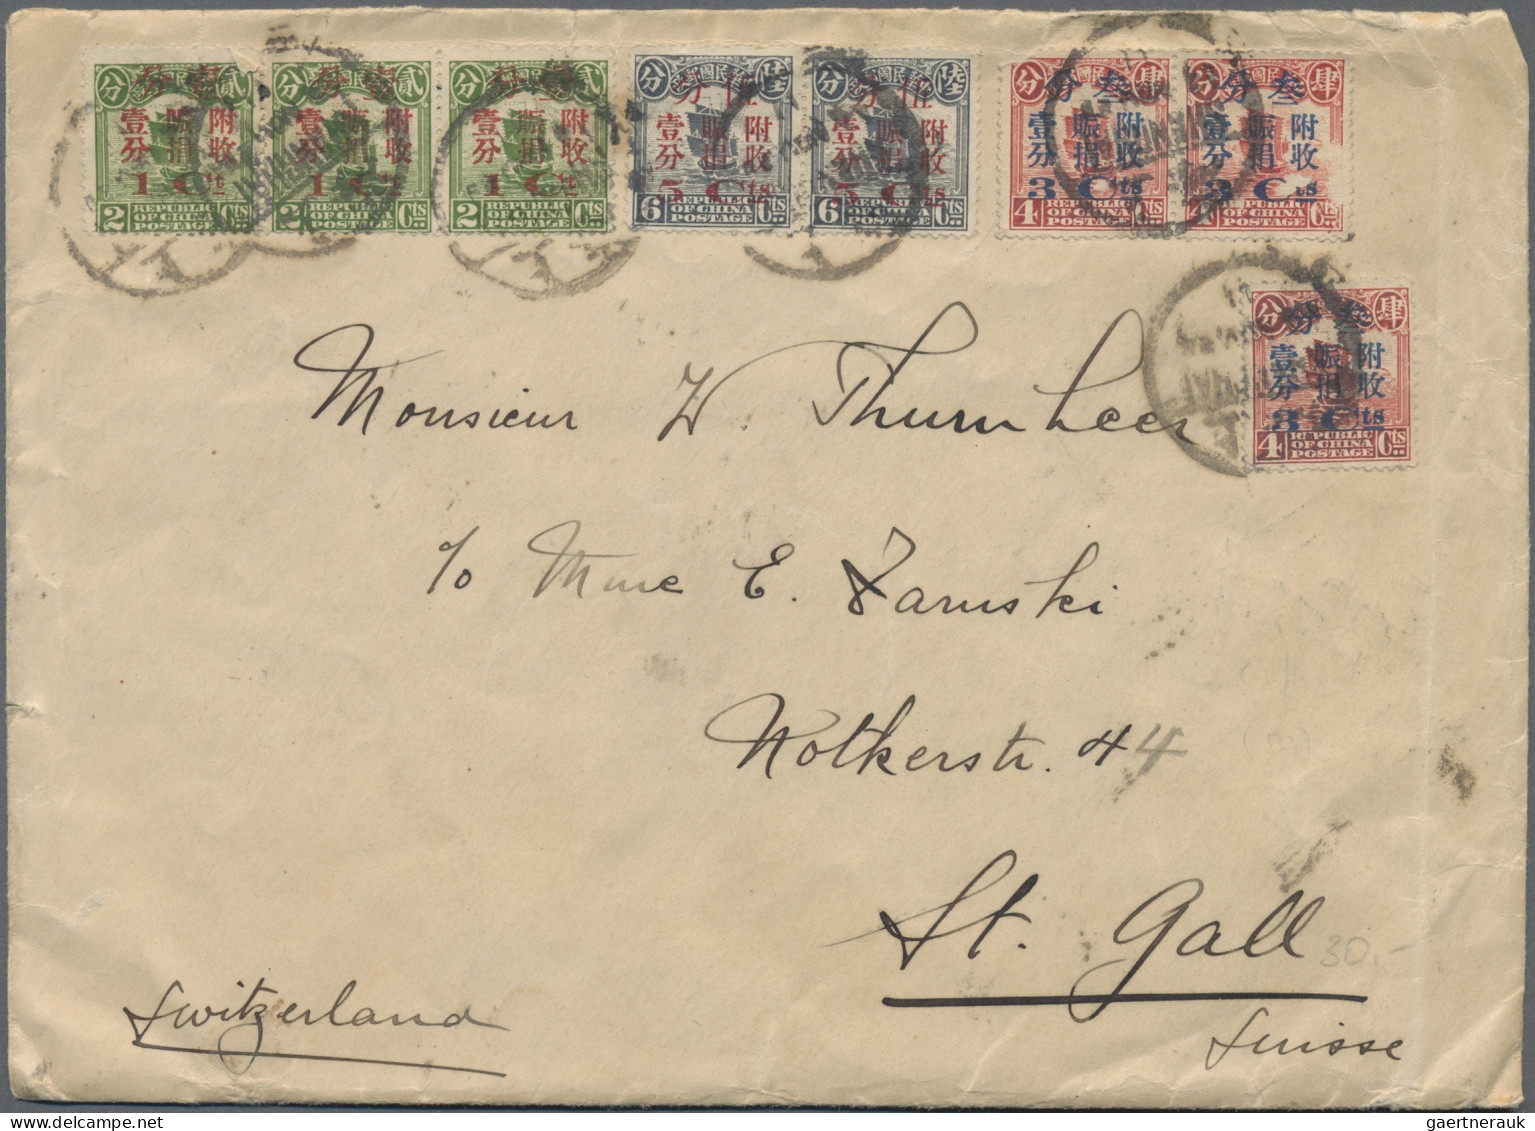 分 壹 貳 分 壹 貳 分 壹 貳 分 伍 陸 分 伍 陸 分 叁 肆 分 叁 肆
壹分 賑捐 附收 壹分 賑捐 附收 壹分 賑捐 附收 壹分 賑捐 附收 壹分 賑捐 附收 壹分 賑捐 附收 壹分 賑捐 附收
1 Ct 1 Ct 1 Ct 5 Cts 5 Cts 3 Cts 3 Cts
2 REPUBLIC OF CHINA POSTAGE Cts 2 REPUBLIC OF CHINA POSTAGE Cts 2 REPUBLIC OF CHINA POSTAGE Cts 6 REPUBLIC OF CHINA POSTAGE Cts 6 REPUBLIC OF CHINA POSTAGE Cts 4 REPUBLIC OF CHINA POSTAGE Cts REPUBLIC OF CHINA POSTAGE
分 分 叁 肆
壹分 賑捐 附收
3 Cts
4 REPUBLIC OF CHINA POSTAGE Cts
Monsieur W. Thurnheer
c/o Mme E. Zaruski
Notkerstr. 44
St. Gall
30.-
Suisse
Switzerland
gaertnerauk